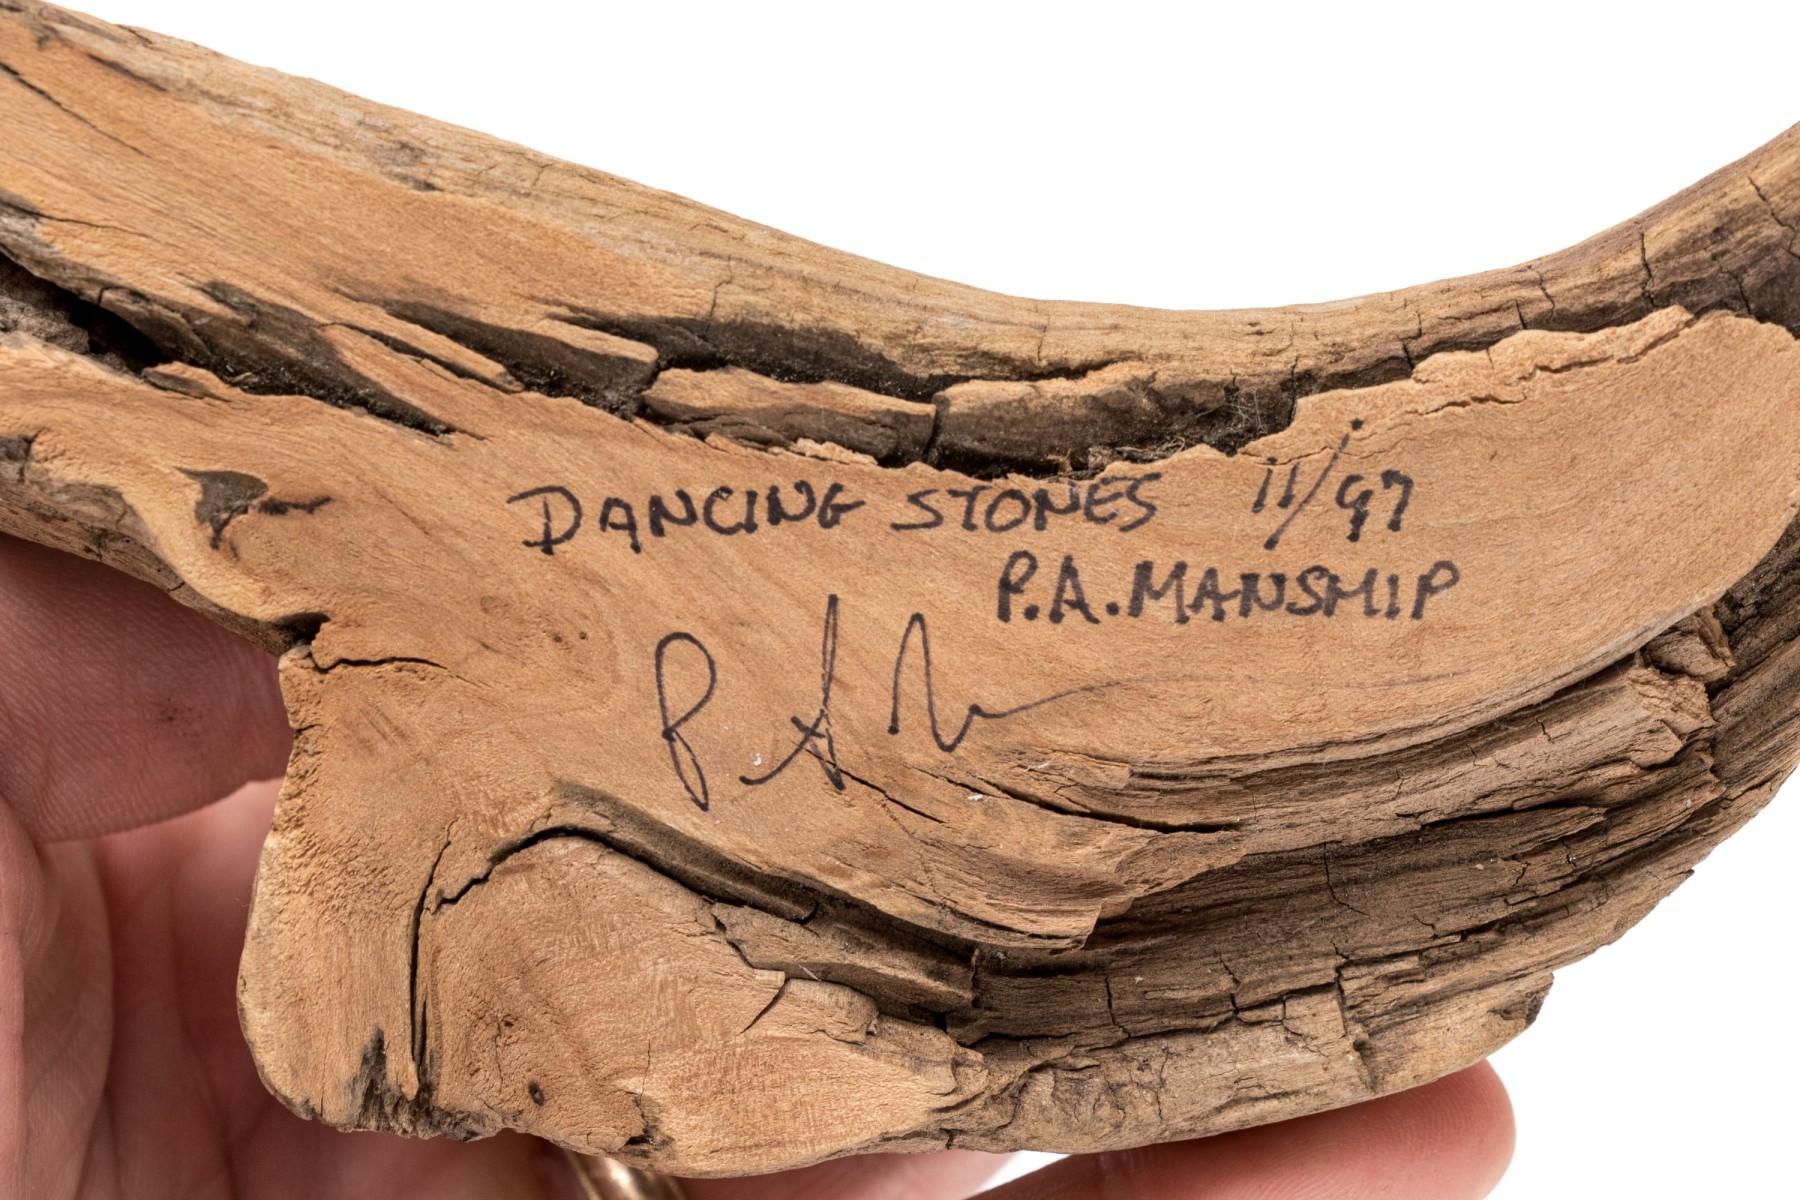 DANCING STONES 11/97
P.A. MANSHIP
P A M